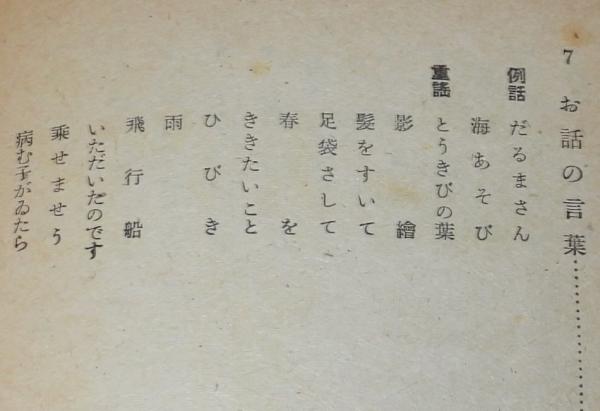 7 お話の言葉…………
例話 だるまさん
海あそび
童謡 とうきびの葉
影繪
髪をすいて
足袋さして
春を
ききたいこと
ひびき
雨
飛行船
いただいたのです
乘せませう
病む子がゐたら